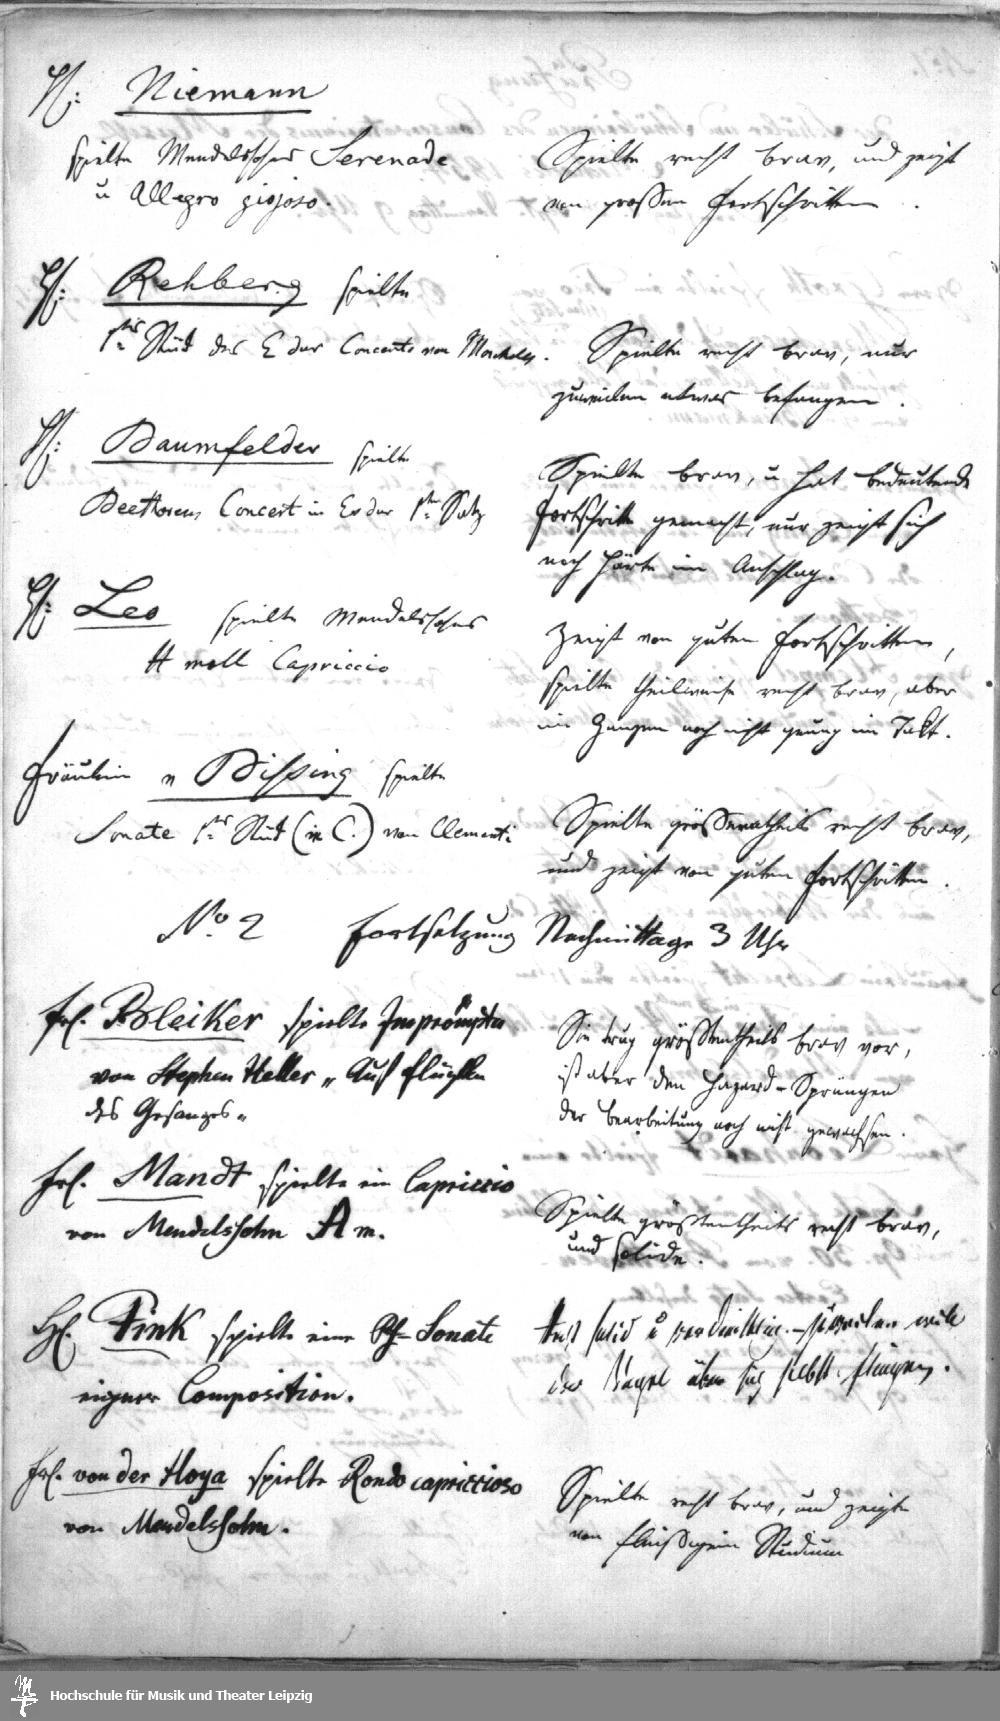 H: Niemann
spielte Mendelssohns Serenade
u Allegro giojoso.
Spielte recht brav, und zeigt
von grossen Fortschritten.
H: Rehberg spielte
1stes Stück des E dur Concerts von Moscheles.
Spielte recht brav, nur
zuweilen etwas befangen.
H: Baumfelder spielte
Beethovens Concert in Es dur 1ter Satz
Spielte brav, u hat bedeutende
Fortschritte gemacht, nur zeigt sich
noch Härte im Anschlag.
H: Leo spielte Mendelssohns
H moll Capriccio
Zeigt von guten Fortschritten,
spielte theilweise recht brav, aber
im Ganzen noch nicht genug im Takt.
Fräulein v Bissing spielte
Sonate 1tes Stück (in C.) von Clementi
Spielte grösstentheils recht brav,
und zeigt von guten Fortschritten.
No. 2 Fortsetzung Nachmittags 3 Uhr
Frl. Bleiker spielte Impromptu
von Stephen Heller „Auf Flügeln
des Gesanges"
Sie trug grösstentheils brav vor,
ist aber den Hazard-Sprüngen
der Bearbeitung noch nicht gewachsen.
Frl. Mandt spielte ein Capriccio
von Mendelssohn A m.
Spielte grösstentheils recht brav,
und solide.
H. Fink spielte eine Pf-Sonate
eigner Composition.
solid u
der über sich selbst
Frl. von der Hoya spielte Rondo capriccioso
von Mendelssohn.
Spielte recht brav, und zeigte
von fleissigem Studium
Hochschule für Musik und Theater Leipzig